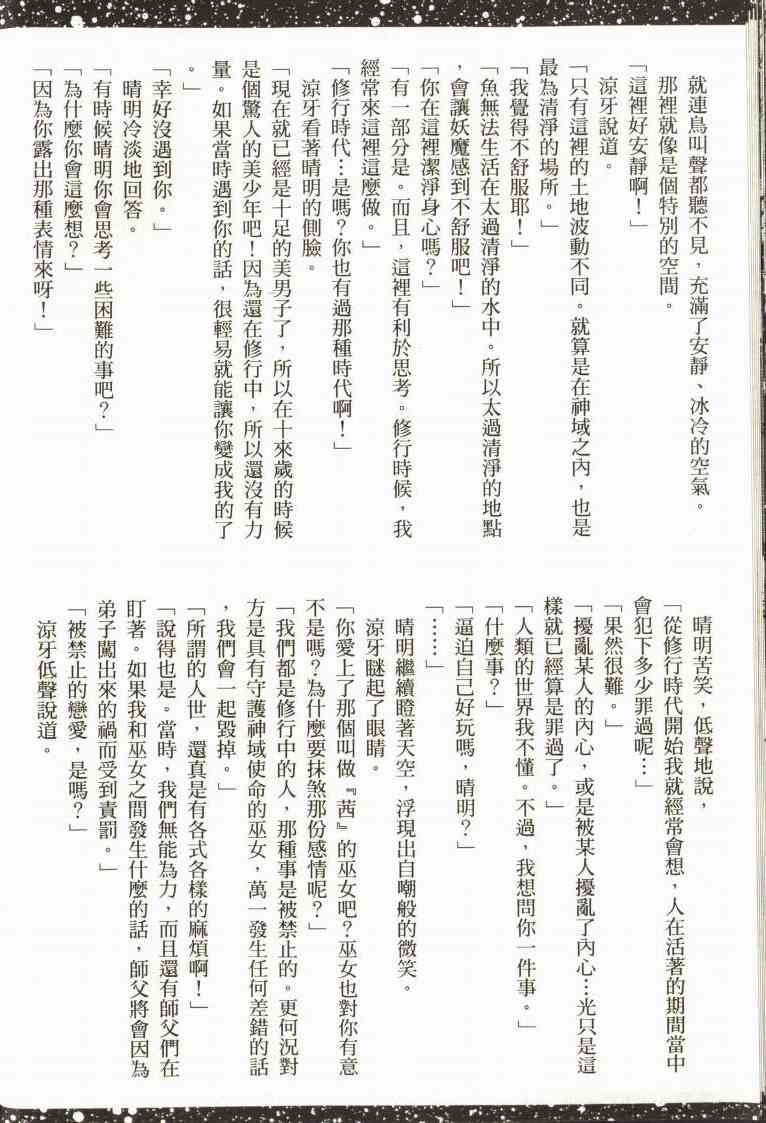 就連鳥叫聲都聽不見，充滿了安靜、冰冷的空氣。
那裡就像是個特別的空間。
「這裡好安靜啊！」
涼牙說道。
「只有這裡的土地波動不同。就算是在神域之內，也是
最為清淨的場所。」
「我覺得不舒服耶！」
「魚無法生活在太過清淨的水中。所以太過清淨的地點
，會讓妖魔感到不舒服吧！」
「你在這裡潔淨身心嗎？」
「有一部分是。而且，這裡有利於思考。修行時候，我
經常來這裡這麼做。」
「修行時代…是嗎？你也有過那種時代啊！」
涼牙看著晴明的側臉。
「現在就已經是十足的美男子了，所以在十來歲的時候
是個驚人的美少年吧！因為還在修行中，所以還沒有力
量。如果當時遇到你的話，很輕易就能讓你變成我的了
。」
「幸好沒遇到你。」
晴明冷淡地回答。
「有時候晴明你會思考一些困難的事吧？」
「為什麼你會這麼想？」
「因為你露出那種表情來呀！」
晴明苦笑，低聲地說，
「從修行時代開始我就經常會想，人在活著的期間當中
會犯下多少罪過呢…」
「果然很難。」
「擾亂某人的內心，或是被某人擾亂了內心…光只是這
樣就已經算是罪過了。」
「人類的世界我不懂。不過，我想問你一件事。」
「什麼事？」
「逼迫自己好玩嗎，晴明？」
「……」
晴明繼續瞪著天空，浮現出自嘲般的微笑。
涼牙瞇起了眼睛。
「你愛上了那個叫做『茜』的巫女吧？巫女也對你有意
不是嗎？為什麼要抹煞那份感情呢？」
「我們都是修行中的人，那種事是被禁止的。更何況對
方是具有守護神域使命的巫女，萬一發生任何差錯的話
，我們會一起毀掉。」
「所謂的人世，還真是有各式各樣的麻煩啊！」
「說得也是。當時，我們無能為力，而且還有師父們在
盯著。如果我和巫女之間發生什麼的話，師父將會因為
弟子闖出來的禍而受到責罰。」
「被禁止的戀愛，是嗎？」
涼牙低聲說道。